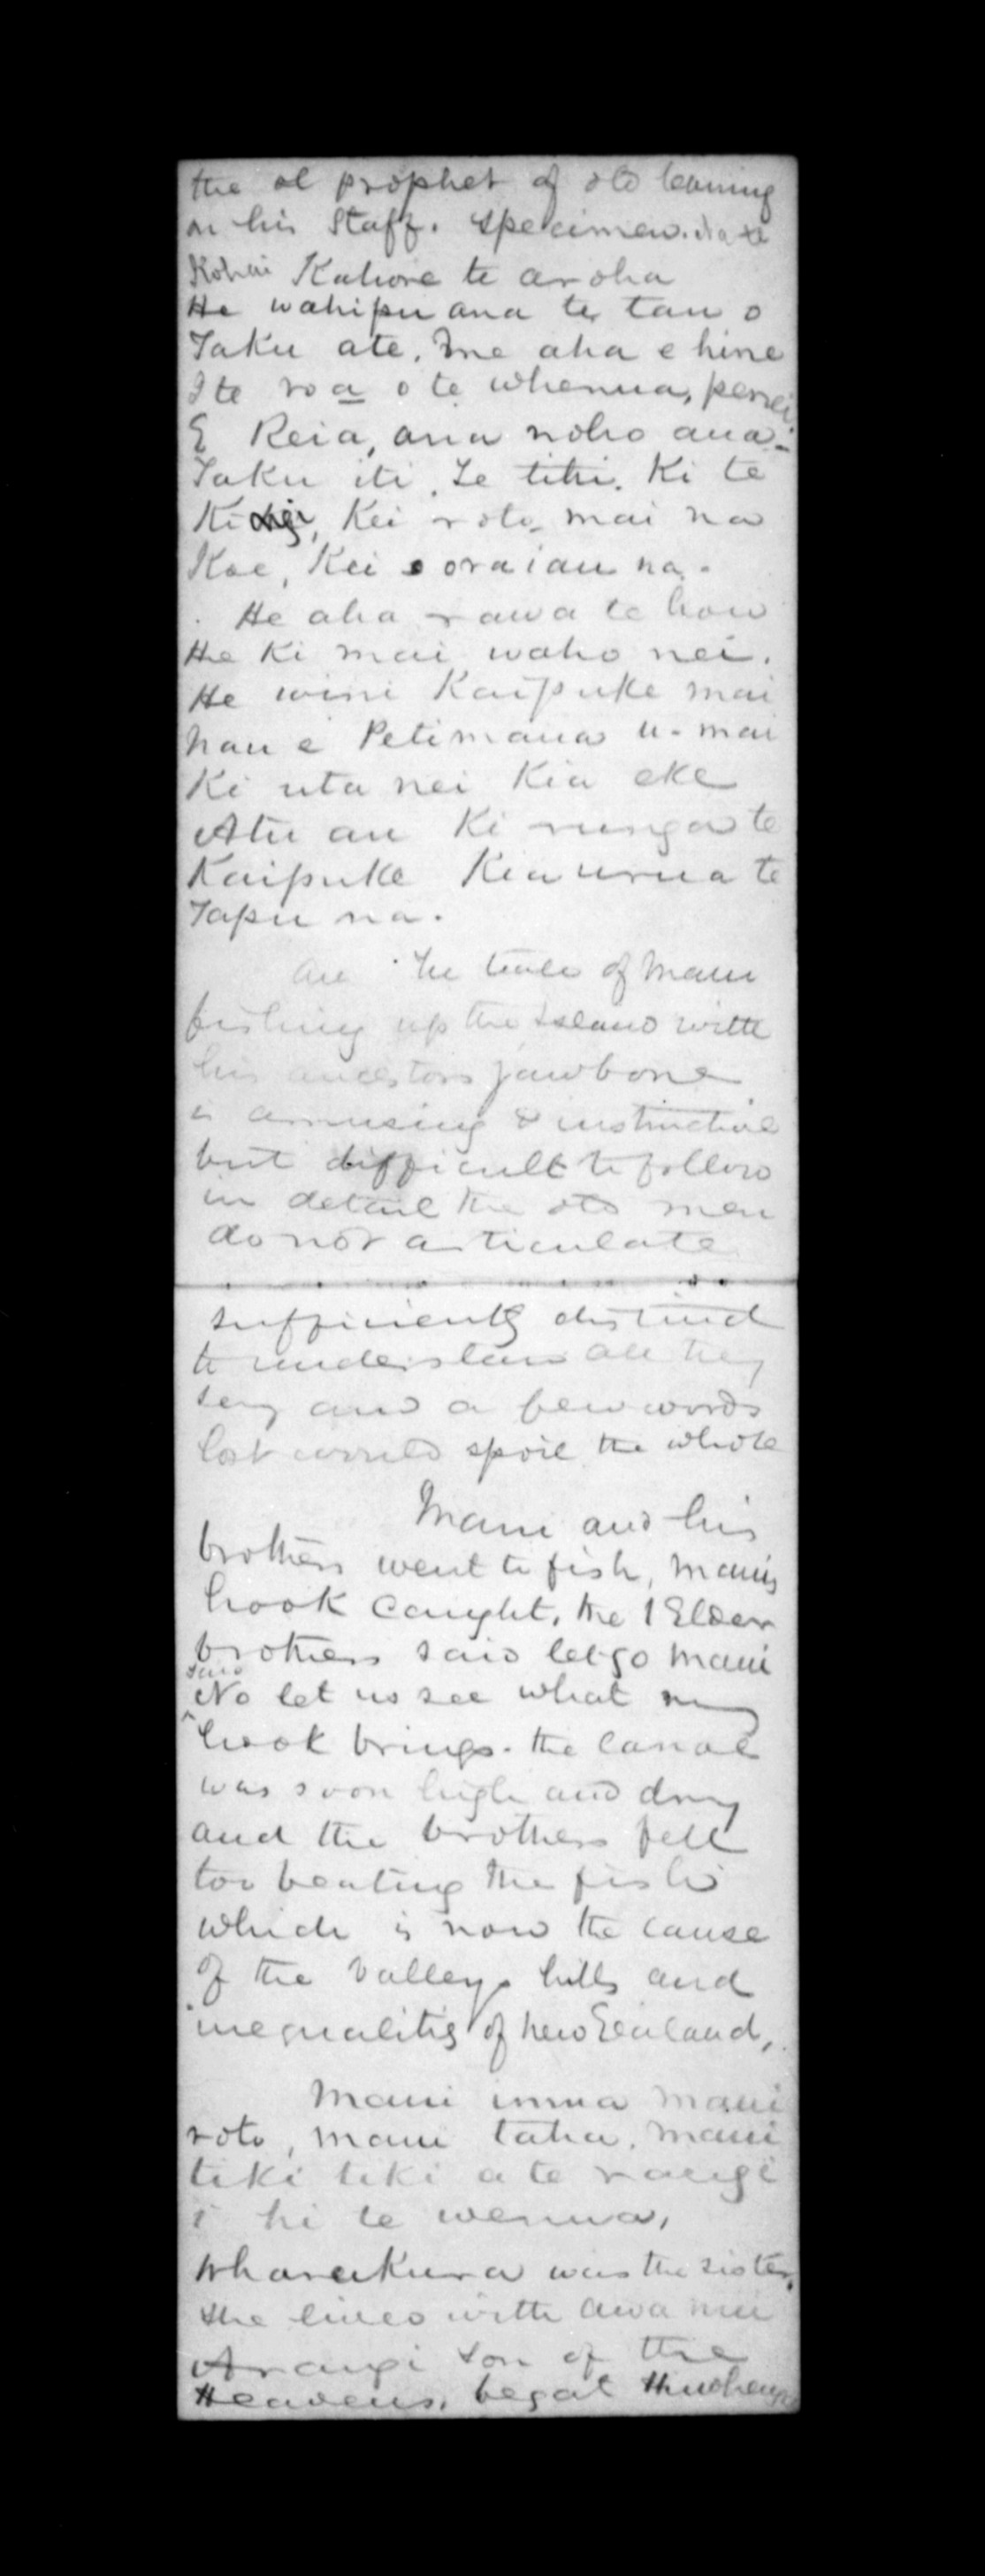 the ol prophet of old leaning
on his Staff. Specimen. Na te
Kohai Kahore te aroha
He wahipu ana te tau o
Taku ate. Me aha e hine
I te roa o te whenua, penei
E Reia, ana noho ana-
Taku iti. Te tihi. Ki te
Ki Kei roto mai na
Koe, Kei o oraiau na.
He aha rawa te hau
He Ki mai waho nei.
He wini Kaipuke mai
nau e Petimana u-mai
Ki uta nei Kia eke
Atu au Ki runga te
Kaipuke Kia urua te
Tapu na.
The tale of Maui
fishing up the Island with
his ancestors jawbone
is amusing & instructive
but difficult to follow
in detail the old men
do not articulate
sufficiently distinct
to understand all they
say and a few words
lost would spoil the whole
Maui and his
brothers went to fish, Mauis
hook caught, the 1 Elder
brothers said let go Maui
said
No let us see what my
hook brings. the canoe
was soon high and dry
and the brothers fell
too beating the fish
which is now the cause
of the valleys hills and
inequalitis of New Zealand,
Maui mua Maui
roto, Maui taha. Maui
tiki tiki a te rangi
i hi te wenua,
Wharekura was the sister,
she lived with Awa nui
Arangi Son of the
Heavens. begat